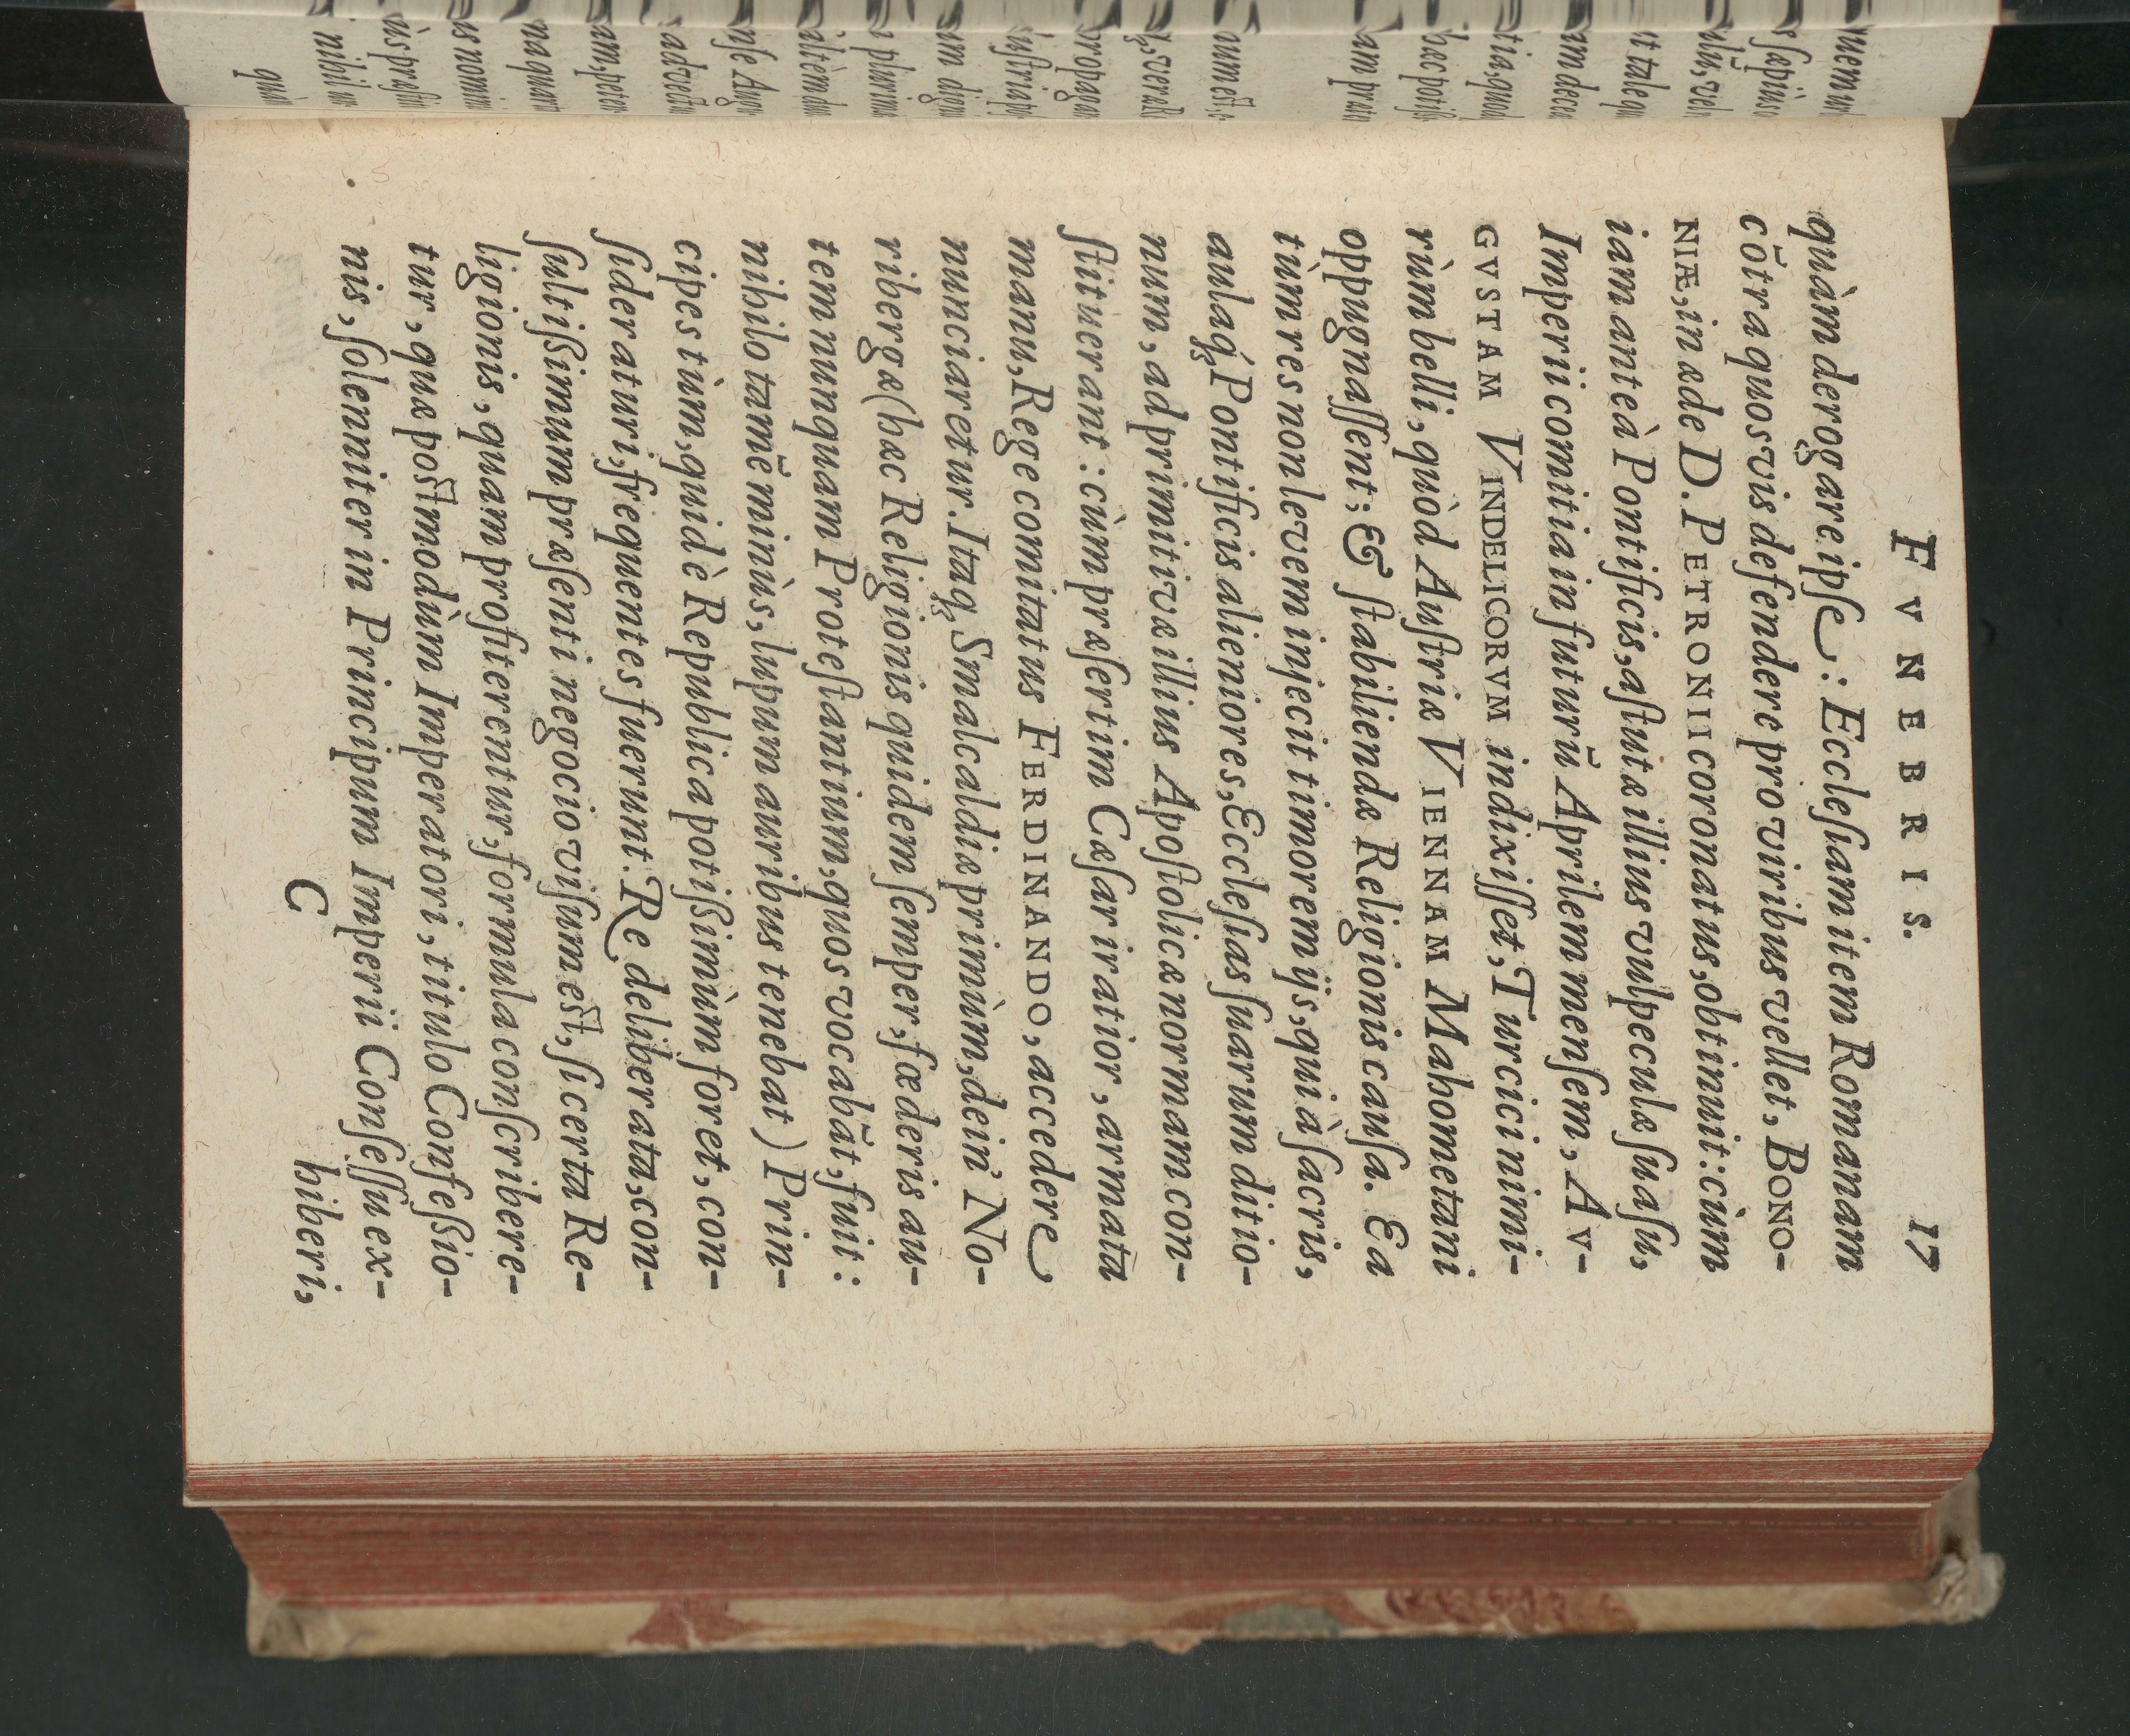 FVNEBRIS. 17
quàm derogare ipſe: Eccleſiam item Romanam
cōtra quosvis defendere pro viribus vellet, BONO-
NIÆ, in æde D. PETRONII coronatus, obtinuit: cùm
iam anteà Pontificis, aſtutæ illius vulpeculæ ſuaſu,
Imperii comitia in futurū Aprilem menſem, AV-
GVSTAM VINDELICORVM indixiſſet, Turcici nimi-
rùm belli, quòd Auſtriæ VIENNAM Mahometani
oppugnaſſent; & ſtabiliendæ Religionis cauſa. Ea
tùm res non levem injecit timorem ijs, quià ſacris,
aulaq́; Pontificis alieniores, Eccleſias ſuarum ditio-
num, ad primitivæ illius Apoſtolicæ normam con-
ſtituerant: cùm præſertim Cæſar iratior, armata
manu, Rege comitatus FERDINANDO, accedere
nunciaretur. Itaq; Smalcaldiæ primùm, dein No-
ribergæ (hæc Religionis quidem ſemper, fœderis au-
tem nunquam Proteſtantium, quos vocabāt, fuit:
nihilo tamē minùs, lupum auribus tenebat) Prin-
cipes tùm, quid è Republica potiſsimùm foret, con-
ſideraturi, frequentes fuerunt. Re deliberata, con-
ſultiſsimum præſenti negocio viſum eſt, ſi certa Re-
ligionis, quam profiterentur, formula conſcribere-
tur, quæ poſtmodùm Imperatori, titulo Confeſsio-
nis, ſolenniter in Principum Imperii Conſeſſu ex-
C hiberi,